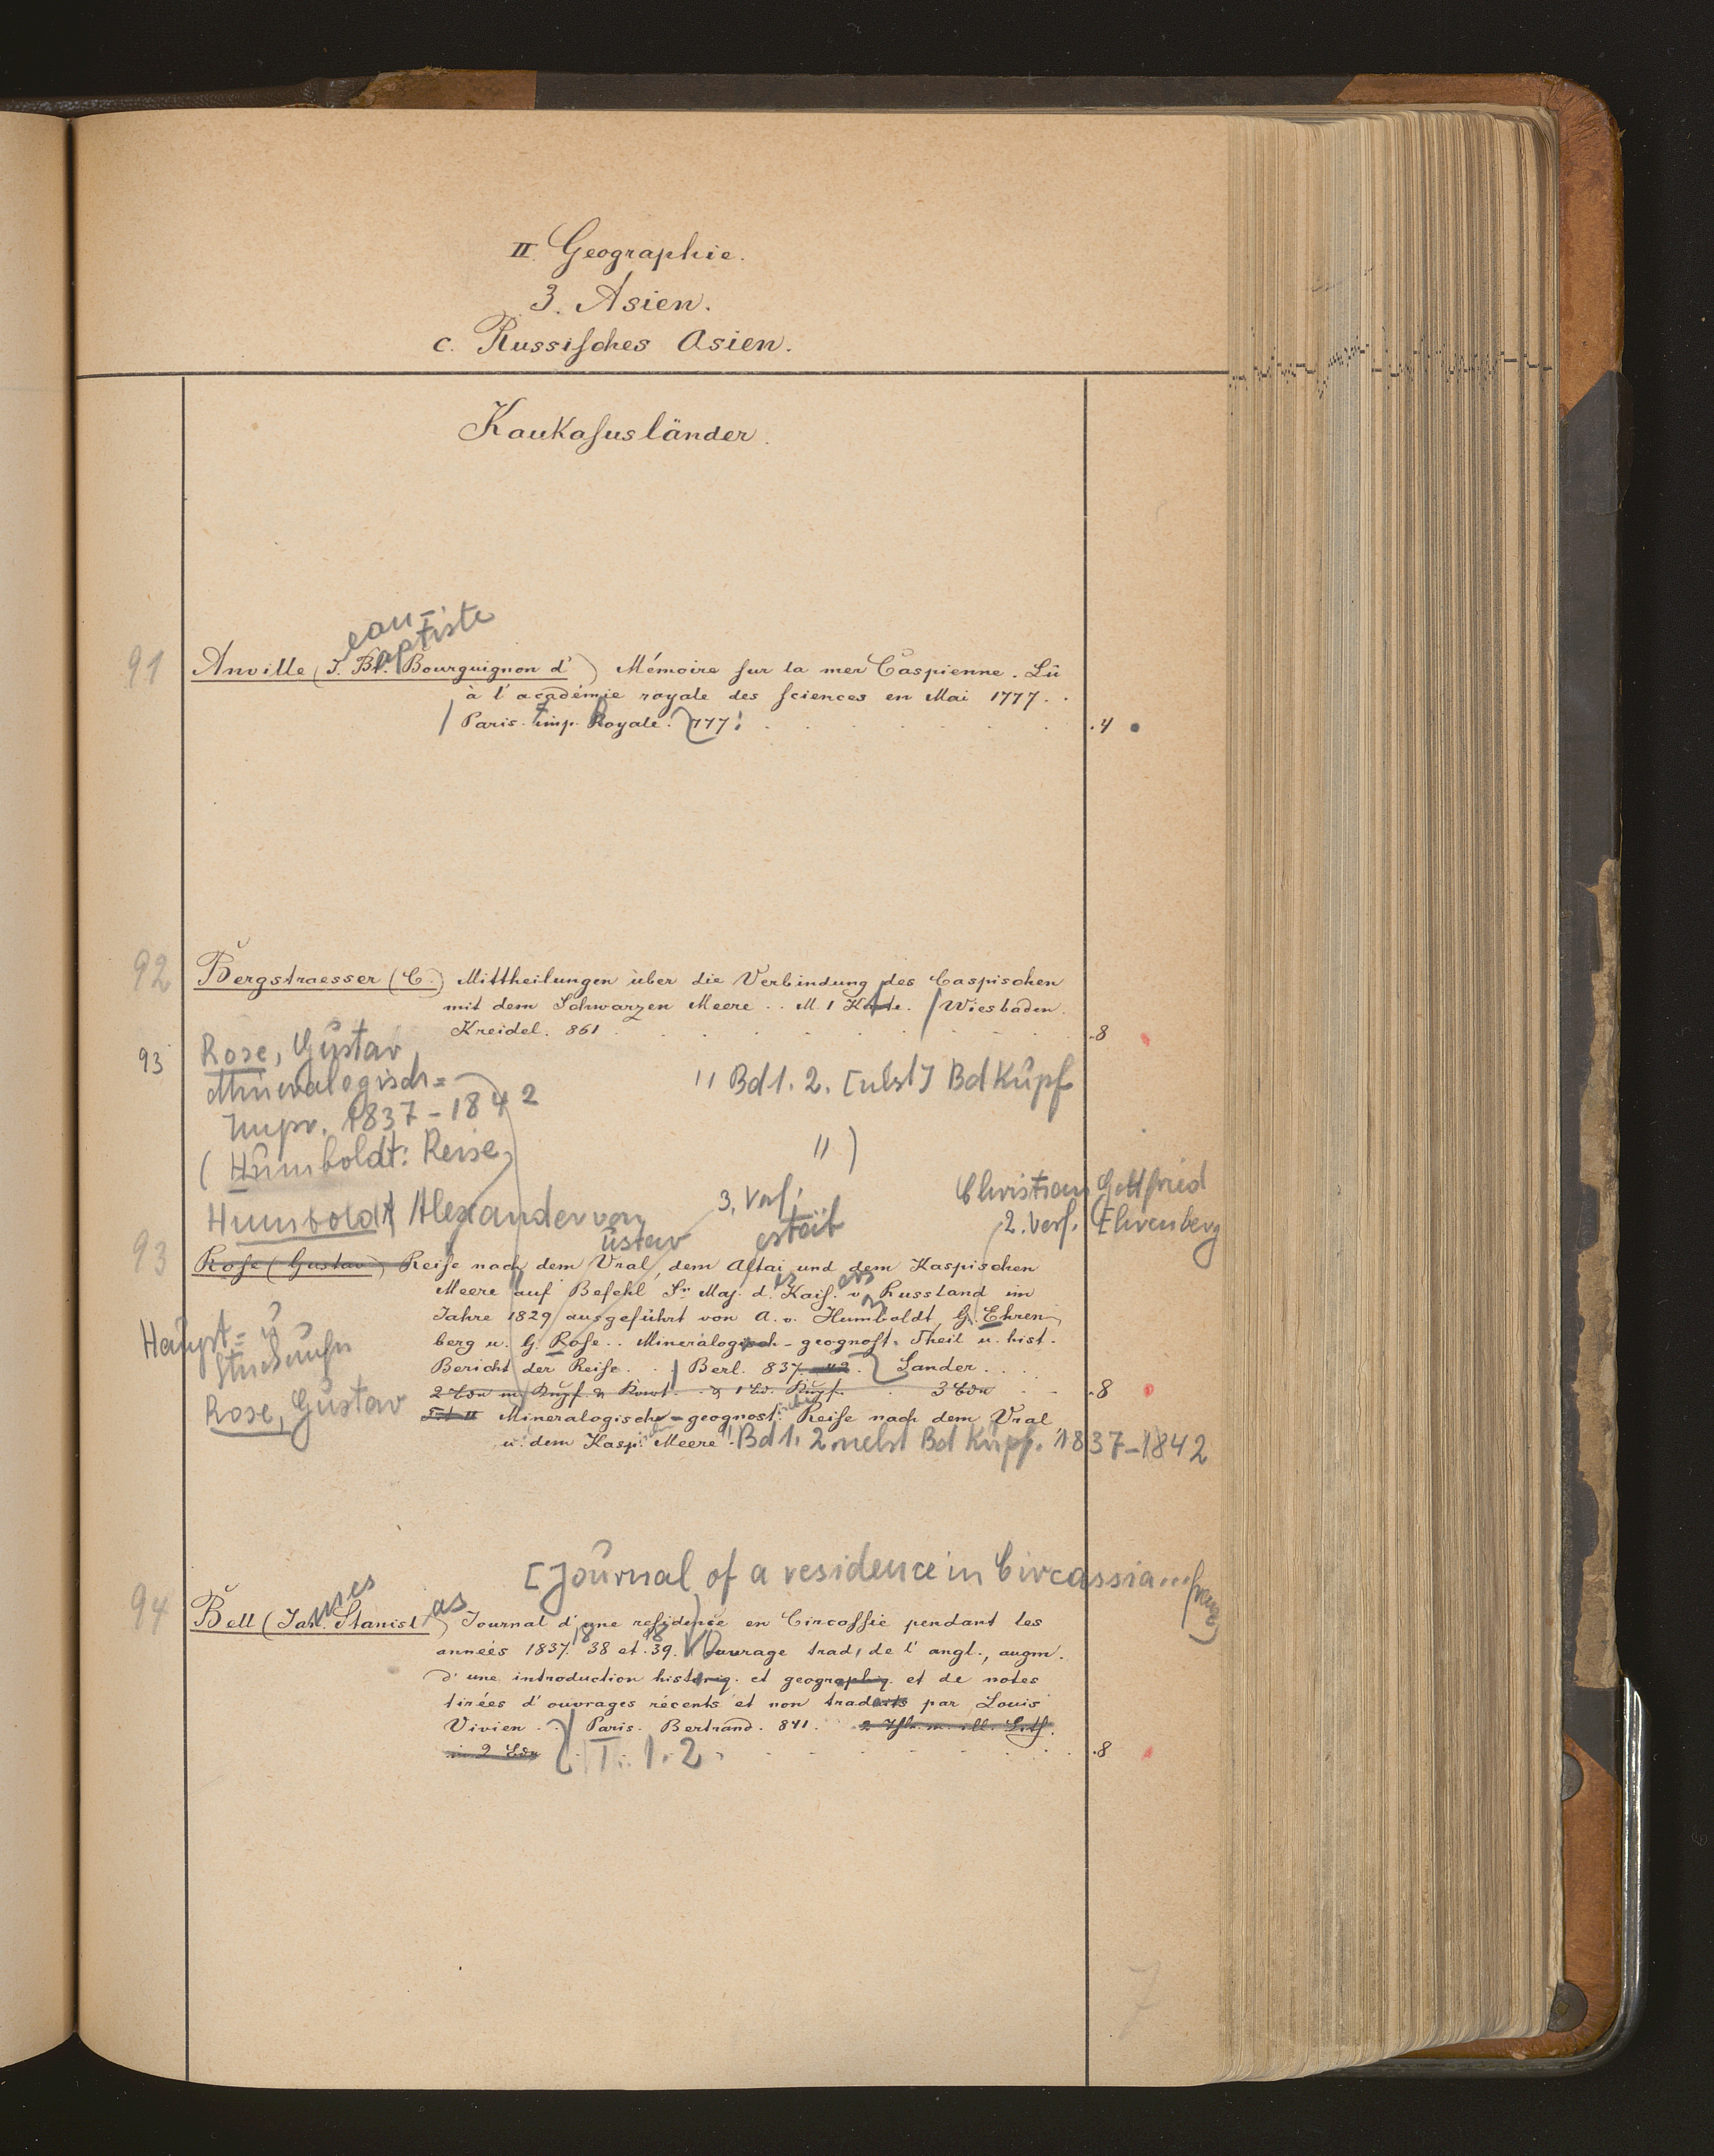 II. Geographie.
3. Asien.
c. Russisches Asien.
Kaukasusländer.
ean-
aptiste
91 Anville (J. Bt. Bourguignon d') Mémoire sur la mer Caspienne. Lû
à l'académie royale des sciences en Mai 1777.
Paris. Imp. Royale. 777. .4
92 Bergstraesser (C.) Mittheilungen über die Verbindung des Caspischen
mit dem Schwarzen Meere .. M. 1 Karte. Wiesbaden.
Kreidel. 861 .8
93 Rose, Gustav
Mineralogisch= " Bd 1. 2. [nebst] Bd Kupf
Impr. 1837-1842
(Humboldt: Reise ")
Christian Gottfried
Humboldt, Alexander von 3. Verf. 2. Verf. Ehrenberg
ustav estät
93 Rose (Gustav) Reise nach dem Ural, dem Altai und dem Kaspischen
Meere auf Befehl Sr. Maj. d. Kais. v. Russland im
Jahre 1829 ausgeführt von A. v. Humboldt, G. Ehren-
berg u. G. Rose .. Mineralogisch-geognost. Theil u. hist.
Haupt= u
Bericht der Reise. Berl. 837-42. Sander.
2 Bde m. Kupf. & 1 Bd. Kupf. 3 Bde .8
Rose, Gustav
Tit II Mineralogisch-geognost. Reise nach dem Ural
u. dem Kasp. Meere". Bd 1. 2. nebst Bd Kupf. 1837-1842
[Journal of a residence in Circassia... franz.]
ames as
94 Bell (Jak. Stanisl.) Journal d'une residence en Circassie pendant les
années 1837. 38 et 39. Ouvrage trad. de l'angl., augm.
d'une introduction historiq. et geographiq. et de notes
tirées d'ouvrages récents et non traduits par Louis
Vivien .. Paris. Bertrand. 841.
in 2 Bdn T. 1. 2. .8
7